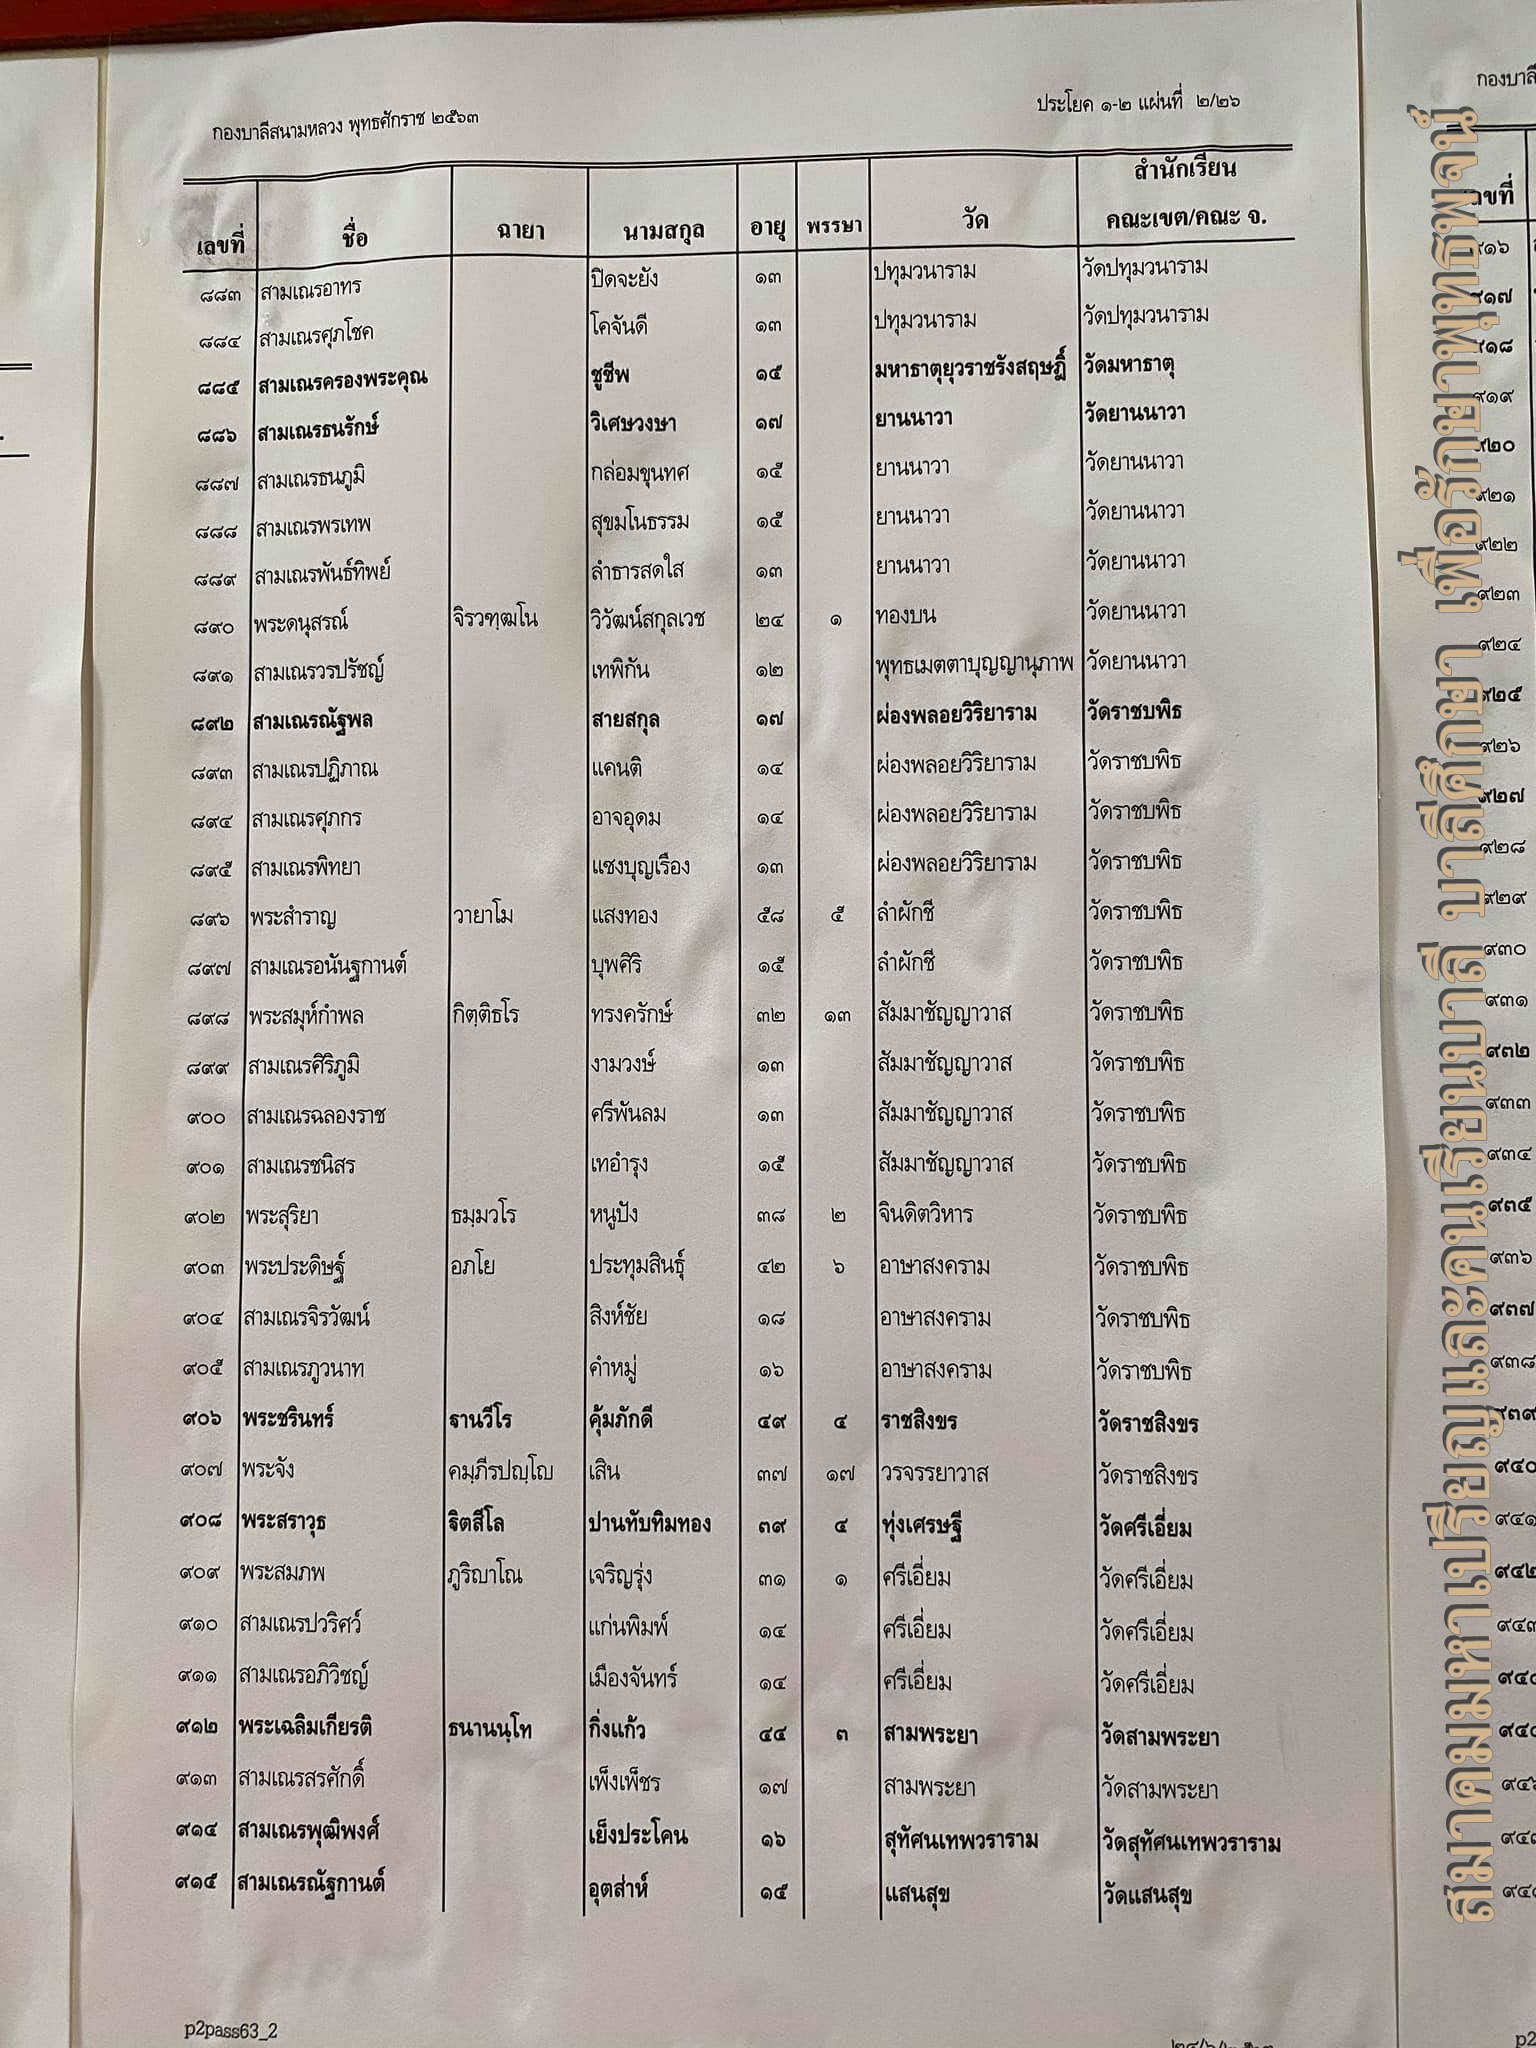 กองบาลีสนามหลวง พุทธศักราช ๒๕๖๓
ประโยค ๑-๒ แผ่นที่ ๒/๒๖
เลขที่ ชื่อ ฉายา นามสกุล อายุ พรรษา วัด สำนักเรียน คณะเขต/คณะ จ.
๘๘๓ สามเณรอาทร ปิดจะยัง ๑๓ ปทุมวนาราม วัดปทุมวนาราม
๘๘๔ สามเณรศุภโชค โคจันดี ๑๓ ปทุมวนาราม วัดปทุมวนาราม
๘๘๕ สามเณรครองพระคุณ ชูชีพ ๑๕ มหาธาตุยุวราชรังสฤษฎิ์ วัดมหาธาตุ
๘๘๖ สามเณรธนรักษ์ วิเศษวงษา ๑๗ ยานนาวา วัดยานนาวา
๘๘๗ สามเณรธนภูมิ กล่อมขุนทศ ๑๕ ยานนาวา วัดยานนาวา
๘๘๘ สามเณรพรเทพ สุขมโนธรรม ๑๕ ยานนาวา วัดยานนาวา
๘๘๙ สามเณรพันธ์ทิพย์ ลำธารสดใส ๑๓ ยานนาวา วัดยานนาวา
๘๙๐ พระดนุสรณ์ จิรวฑฺฒโน วิวัฒน์สกุลเวช ๒๔ ๑ ทองบน วัดยานนาวา
๘๙๑ สามเณรวรปรัชญ์ เทพิกัน ๑๒ พุทธเมตตาบุญญานุภาพ วัดยานนาวา
๘๙๒ สามเณรณัฐพล สายสกุล ๑๗ ผ่องพลอยวิริยาราม วัดราชบพิธ
๘๙๓ สามเณรปฏิภาณ แคนติ ๑๔ ผ่องพลอยวิริยาราม วัดราชบพิธ
๘๙๔ สามเณรศุภกร อาจอุดม ๑๔ ผ่องพลอยวิริยาราม วัดราชบพิธ
๘๙๕ สามเณรพิทยา แซงบุญเรือง ๑๓ ผ่องพลอยวิริยาราม วัดราชบพิธ
๘๙๖ พระสำราญ วายาโม แสงทอง ๕๘ ๕ ลำผักชี วัดราชบพิธ
๘๙๗ สามเณรอนันฐกานต์ บุพศิริ ๑๕ ลำผักชี วัดราชบพิธ
๘๙๘ พระสมุห์กำพล กิตฺติธโร ทรงครักษ์ ๓๒ ๑๓ สัมมาชัญญาวาส วัดราชบพิธ
๘๙๙ สามเณรศิริภูมิ งามวงษ์ ๑๓ สัมมาชัญญาวาส วัดราชบพิธ
๙๐๐ สามเณรฉลองราช ศรีพันลม ๑๓ สัมมาชัญญาวาส วัดราชบพิธ
๙๐๑ สามเณรชนิสร เทอำรุง ๑๕ สัมมาชัญญาวาส วัดราชบพิธ
๙๐๒ พระสุริยา ธมฺมวโร หนูปัง ๓๘ ๒ จินดิตวิหาร วัดราชบพิธ
๙๐๓ พระประดิษฐ์ อภโย ประทุมสินธุ์ ๔๒ ๖ อาษาสงคราม วัดราชบพิธ
๙๐๔ สามเณรจิรวัฒน์ สิงห์ชัย ๑๘ อาษาสงคราม วัดราชบพิธ
๙๐๕ สามเณรภูวนาท คำหมู่ ๑๖ อาษาสงคราม วัดราชบพิธ
๙๐๖ พระชรินทร์ ฐานวีโร คุ้มภักดี ๔๙ ๔ ราชสิงขร วัดราชสิงขร
๙๐๗ พระจัง คมฺภีรปญฺโญ เสิน ๓๗ ๑๗ วรจรรยาวาส วัดราชสิงขร
๙๐๘ พระสราวุธ ฐิตสีโล ปานทับทิมทอง ๓๙ ๔ ทุ่งเศรษฐี วัดศรีเอี่ยม
๙๐๙ พระสมภพ ภูริญาโณ เจริญรุ่ง ๓๑ ๑ ศรีเอี่ยม วัดศรีเอี่ยม
๙๑๐ สามเณรปวริศว์ แก่นพิมพ์ ๑๔ ศรีเอี่ยม วัดศรีเอี่ยม
๙๑๑ สามเณรอภิวิชญ์ เมืองจันทร์ ๑๔ ศรีเอี่ยม วัดศรีเอี่ยม
๙๑๒ พระเฉลิมเกียรติ ธนานนฺโท กิ่งแก้ว ๔๔ ๓ สามพระยา วัดสามพระยา
๙๑๓ สามเณรสรศักดิ์ เพ็งเพ็ชร ๑๗ สามพระยา วัดสามพระยา
๙๑๔ สามเณรพุฒิพงศ์ เย็งประโคน ๑๖ สุทัศนเทพวราราม วัดสุทัศนเทพวราราม
๙๑๕ สามเณรณัฐกานต์ อุตส่าห์ ๑๕ แสนสุข วัดแสนสุข
p2pass63_2
กองบาลี
ลขที่
๙๑๖
๙๑๗
๙๑๘
๙๑๙
๙๒๐
๙๒๑
๙๒๒
๙๒๓
๙๒๔
๙๒๕
๙๒๖
๙๒๗
๙๒๘
๙๒๙
๙๓๐
๙๓๑
๙๓๒
๙๓๓
๙๓๔
๙๓๕
๙๓๖
๙๓๗
๙๓๘
๙๓๙
๙๔๐
๙๔๑
๙๔๒
๙๔๓
p2
สมาคมมหาเปรียญและคนเรียนบาลี บาลีศึกษา เพื่อรักษาพุทธพจน์